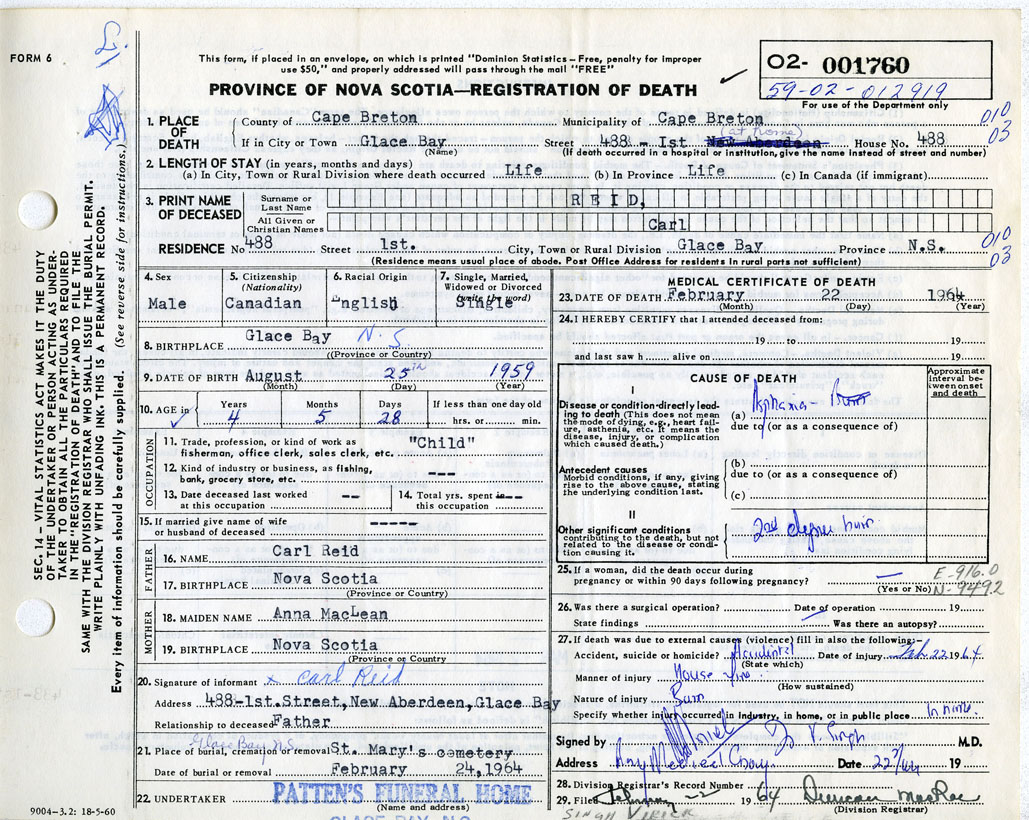 FORM 6
L.
This form, if placed in an envelope, on which is printed "Dominion Statistics – Free, penalty for improper
use $50," and properly addressed will pass through the mail "FREE"
PROVINCE OF NOVA SCOTIA—REGISTRATION OF DEATH
02- 001760
59-02-012919
For use of the Department only
1. PLACE OF DEATH
County of Cape Breton Municipality of Cape Breton 010
If in City or Town Glace Bay Street 488 - 1st New Aberdeen (at home) House No. 488 03
(Name) (If death occurred in a hospital or institution, give the name instead of street and number)
2. LENGTH OF STAY (in years, months and days)
(a) In City, Town or Rural Division where death occurred Life (b) In Province Life (c) In Canada (if immigrant)
3. PRINT NAME OF DECEASED
Surname or Last Name REID,
All Given or Christian Names Carl
RESIDENCE No 488 Street 1st. City, Town or Rural Division Glace Bay Province N.S. 010 03
(Residence means usual place of abode. Post Office Address for residents in rural parts not sufficient)
4. Sex Male
5. Citizenship (Nationality) Canadian
6. Racial Origin English
7. Single, Married, Widowed or Divorced (write the word) Single
8. BIRTHPLACE Glace Bay N.S
(Province or Country)
9. DATE OF BIRTH August 25th 1959
(Month) (Day) (Year)
10. AGE in Years 4 Months 5 Days 28 If less than one day old hrs. or min.
OCCUPATION
11. Trade, profession, or kind of work as fisherman, office clerk, sales clerk, etc. "Child"
12. Kind of industry or business, as fishing, bank, grocery store, etc. ---
13. Date deceased last worked at this occupation --
14. Total yrs. spent in this occupation --
15. If married give name of wife or husband of deceased -----
FATHER
16. NAME Carl Reid
17. BIRTHPLACE Nova Scotia
(Province or Country)
MOTHER
18. MAIDEN NAME Anna MacLean
19. BIRTHPLACE Nova Scotia
(Province or Country
20. Signature of informant x Carl Reid
Address 488-1st.Street,New Aberdeen,Glace Bay
Relationship to deceased Father
21. Place of burial, cremation or removal St. Mary's cemetery Glace Bay N.S
Date of burial or removal February 24,1964
22. UNDERTAKER PATTEN'S FUNERAL HOME
(Name and address)
GLACE BAY, N.S.
9004-3.2: 18-5-60
MEDICAL CERTIFICATE OF DEATH
23. DATE OF DEATH February 22 1964
(Month) (Day) (Year)
24. I HEREBY CERTIFY that I attended deceased from:
19 to 19
and last saw h alive on 19
CAUSE OF DEATH
Approximate interval between onset and death
I
Disease or condition directly leading to death (This does not mean the mode of dying, e.g., heart failure, asthenia, etc. It means the disease, injury, or complication which caused death.)
(a) Asphyxia - Burn
due to (or as a consequence of)
Antecedent causes
Morbid conditions, if any, giving rise to the above cause, stating the underlying condition last.
(b)
due to (or as a consequence of)
(c)
II
Other significant conditions contributing to the death, but not related to the disease or condition causing it.
2nd degree burn
25. If a woman, did the death occur during pregnancy or within 90 days following pregnancy? —
(Yes or No)
E-916.0
N-9492
26. Was there a surgical operation? Date of operation 19
State findings Was there an autopsy?
27. If death was due to external causes (violence) fill in also the following:–
Accident, suicide or homicide? Accidental Date of injury Feb 22 1964
(State which)
Manner of injury House fire.
(How sustained)
Nature of injury Burn
Specify whether injury occurred in Industry, in home, or in public place In home.
Signed by Singh M.D.
Address Date 19
28. Division Registrar's Record Number
29. Filed February 1964 Duncan MacRae
(Division Registrar)
SINGH
SEC. 14 – VITAL STATISTICS ACT MAKES IT THE DUTY
OF THE UNDERTAKER OR PERSON ACTING AS UNDER-
TAKER TO OBTAIN ALL THE PARTICULARS REQUIRED
IN THE "REGISTRATION OF DEATH" AND TO FILE THE
SAME WITH THE DIVISION REGISTRAR WHO SHALL ISSUE THE BURIAL PERMIT.
WRITE PLAINLY WITH UNFADING INK. THIS IS A PERMANENT RECORD.
Every item of information should be carefully supplied. (See reverse side for instructions.)